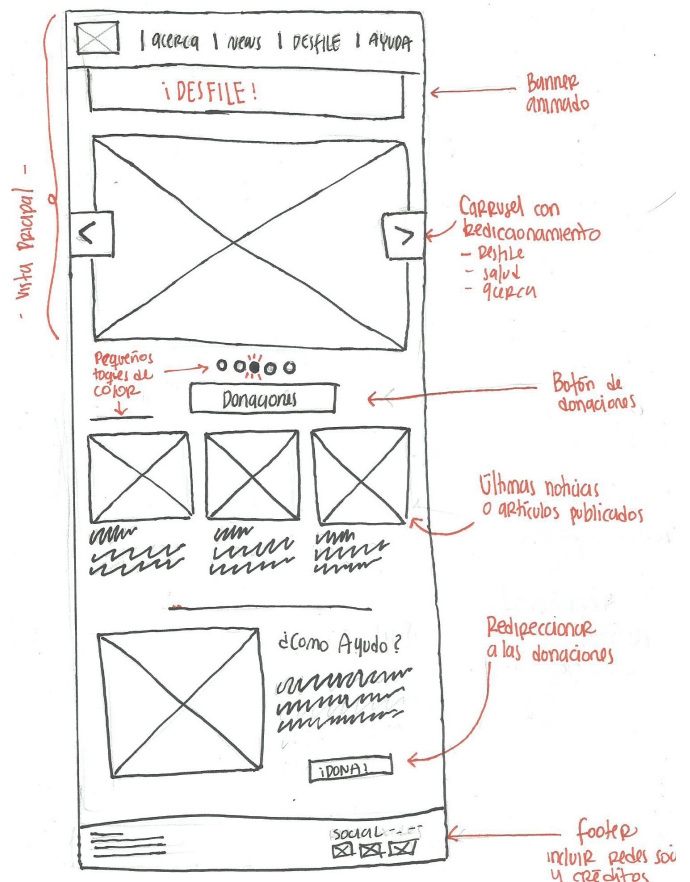 | acerca | News | DESFILE | AYUDA
¡DESFILE!
Banner
animado
- Vista Pricipal -
<
>
Carrusel con
Rediccionamiento
- Desfile
- salud
- acerca
Pequeños
toques de
COlOR
Donaciones
Botón de
donaciones
Últimas noticias
o artículos publicados
¿Como Ayudo?
Redireccionar
a las donaciones
¡DONA!
social
footer
incluir redes soci
y créditos